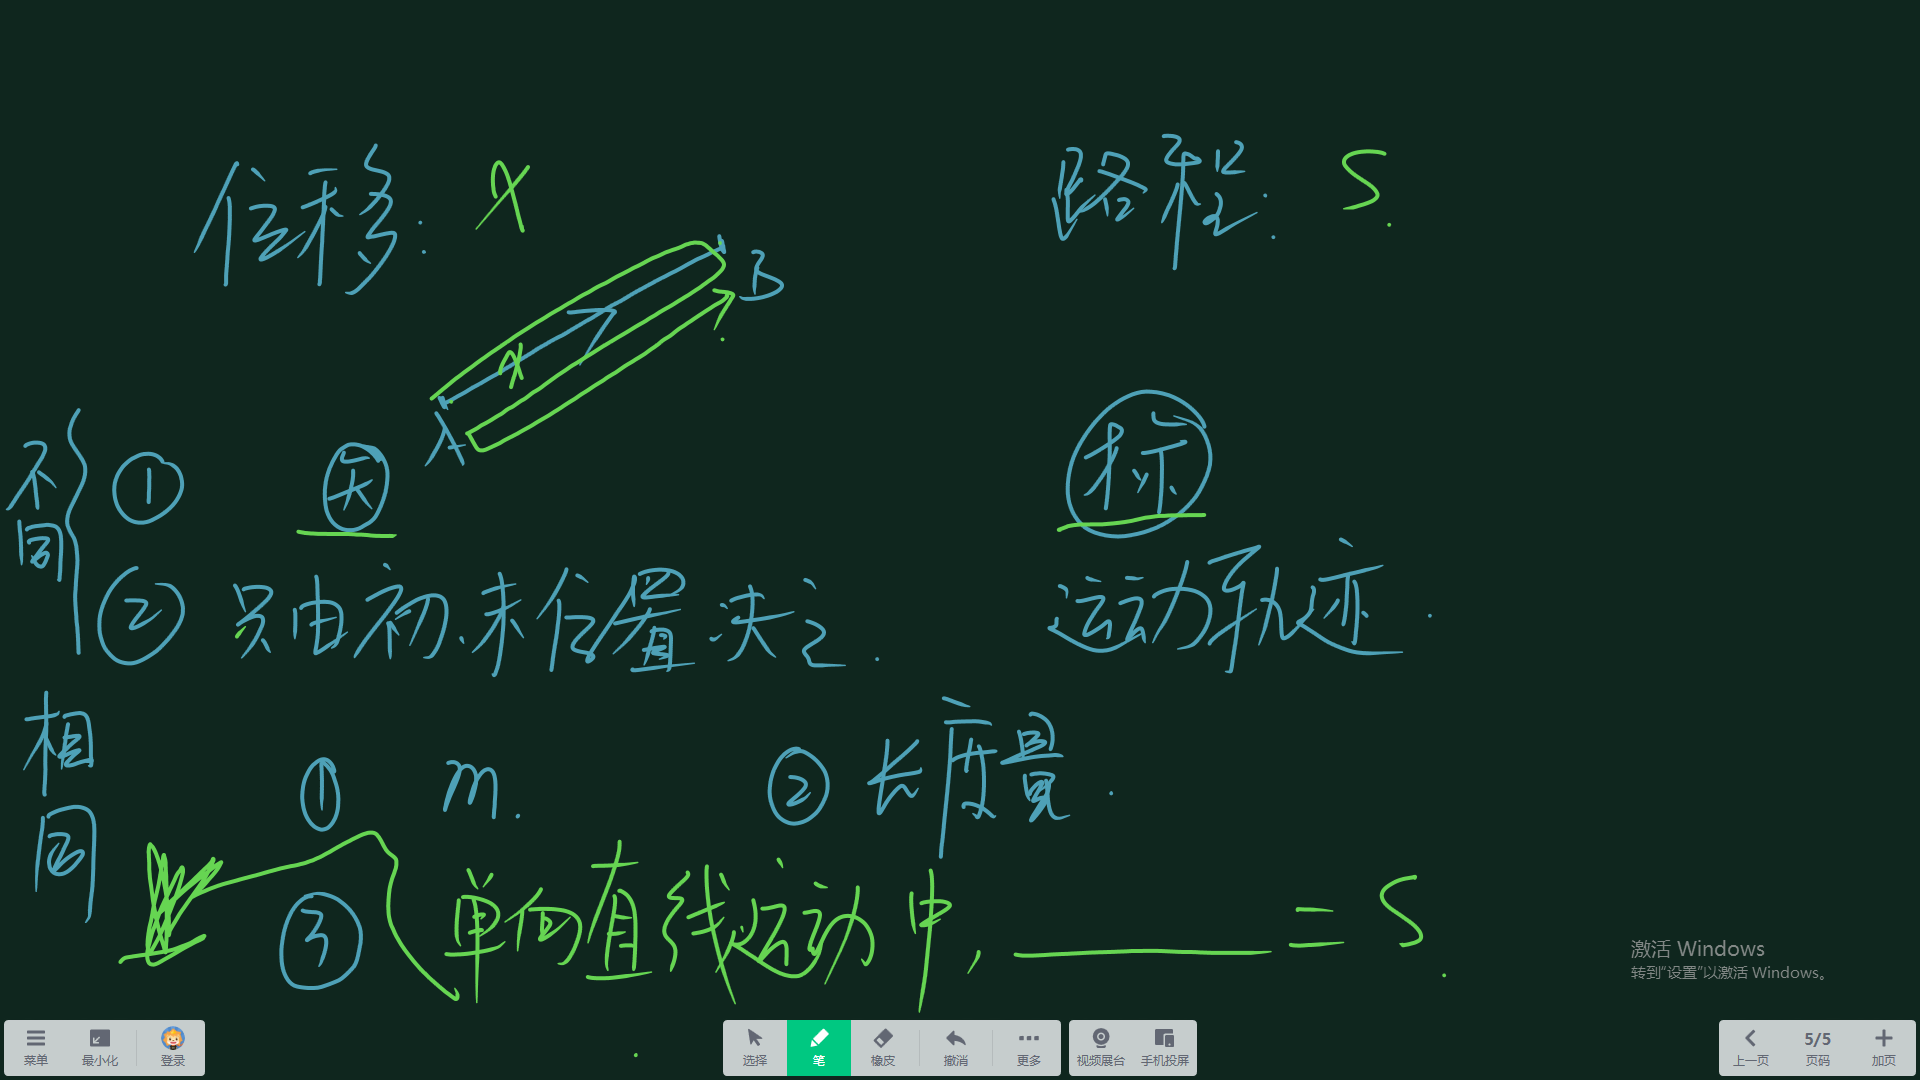 位移: x
路程: S.
B
x
A
不同
① 矢
标
② 只由初、末位置决定.
运动轨迹.
相同
① m. ② 长度量.
③ 单向直线运动中, ______ = S.
激活 Windows
转到“设置”以激活 Windows。
菜单 最小化 登录 选择 笔 橡皮 撤消 更多 视频展台 手机投屏 上一页 5/5 页码 加页